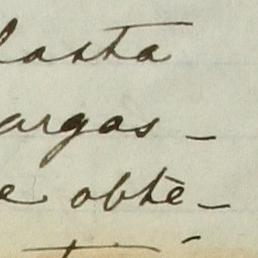 lasta
argas -
e obtè-